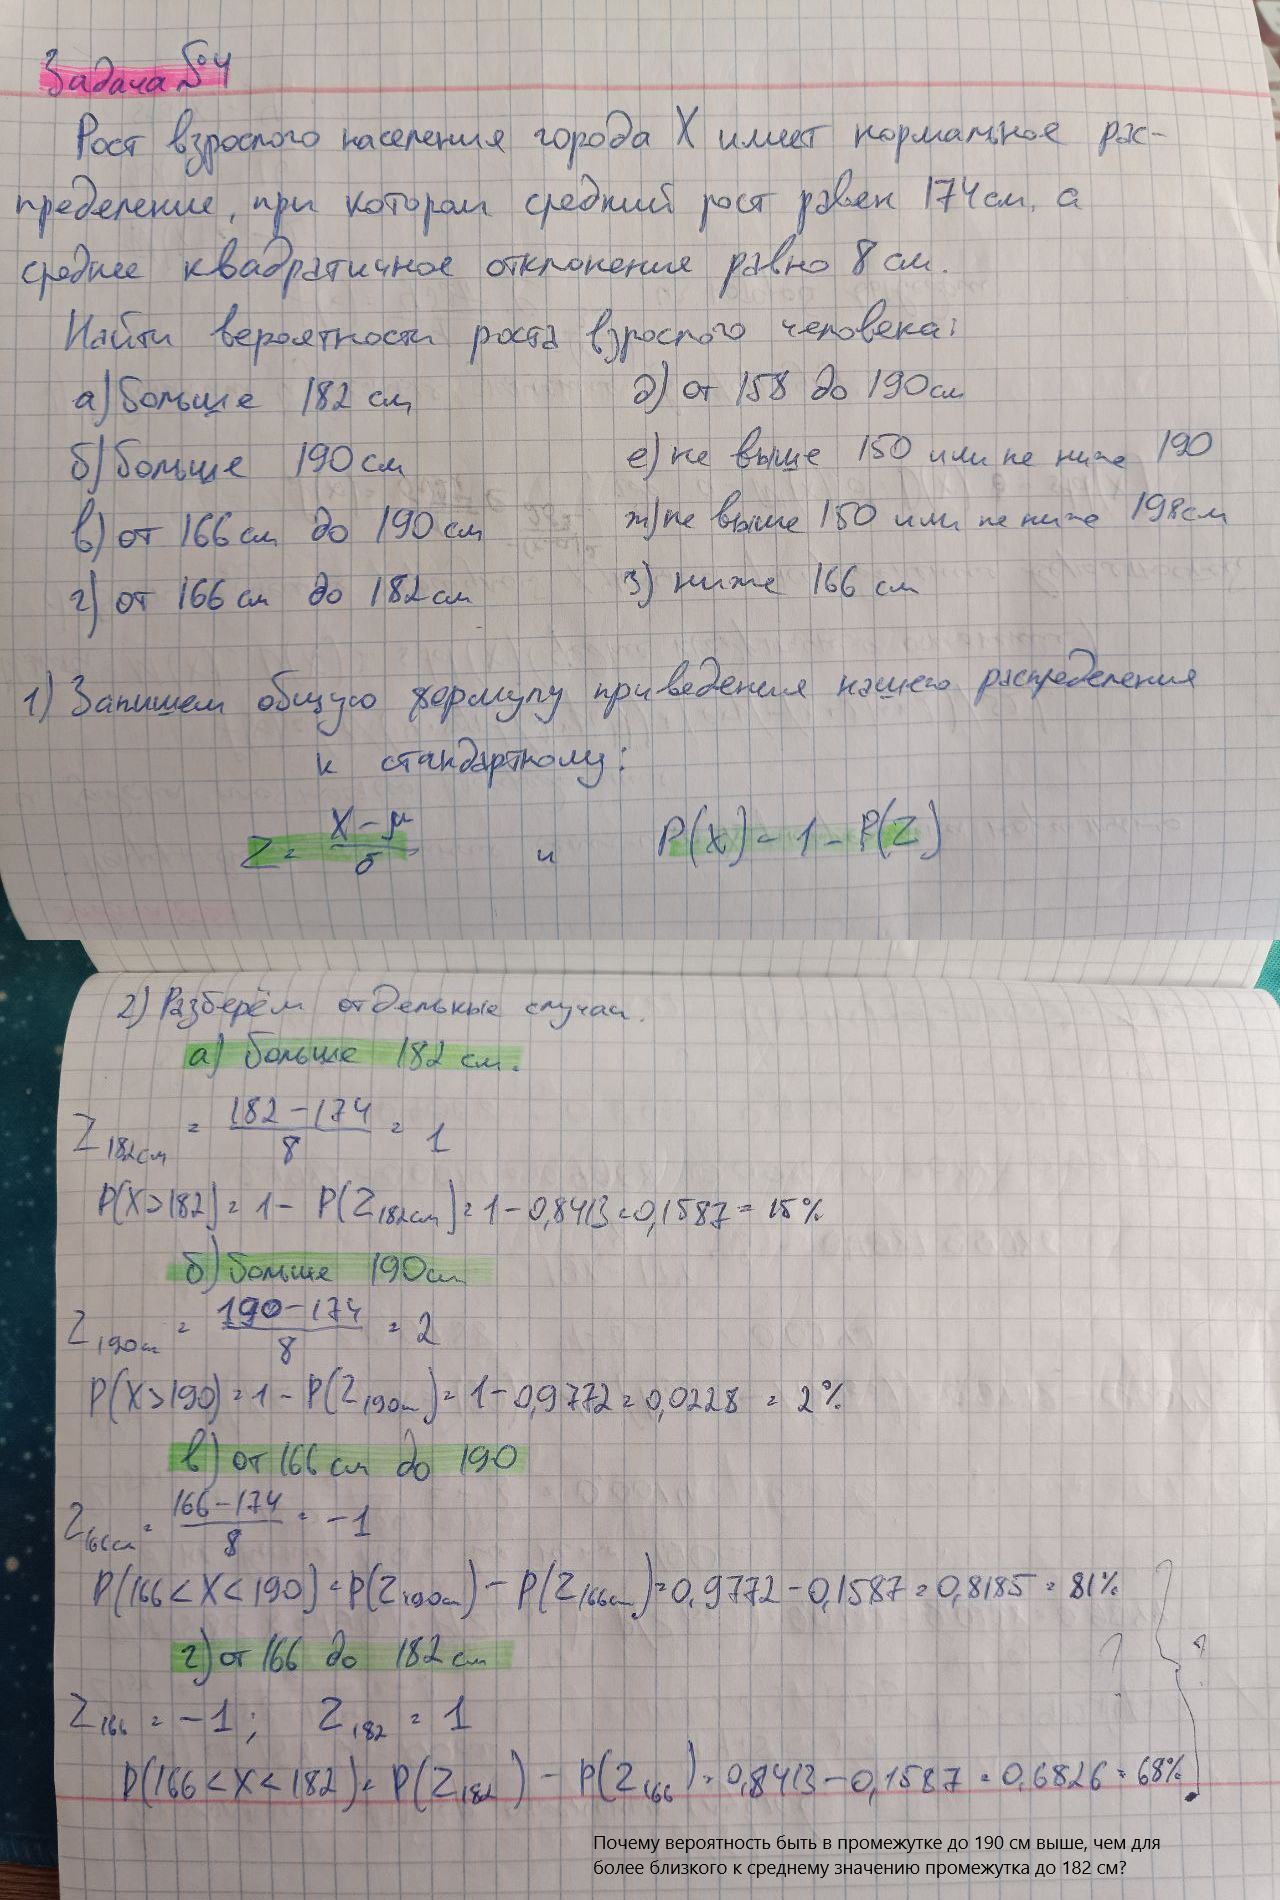 Задача №4
Рост взрослого населения города X имеет нормальное рас-
пределение, при котором средний рост равен 174 см, а
среднее квадратичное отклонение равно 8 см.
Найти вероятности роста взрослого человека:
а) больше 182 см
б) больше 190 см
в) от 166 см до 190 см
г) от 166 см до 182 см
д) от 158 до 190 см
е) не выше 150 или не ниже 190
ж) не выше 150 или не ниже 198 см
з) ниже 166 см
1) Запишем общую формулу приведения нашего распределения
к стандартному:
Z = (X - μ)/σ и P(X) = 1 - P(Z)
2) Разберём отдельные случаи.
а) больше 182 см.
Z182см = (182 - 174)/8 = 1
P(X > 182) = 1 - P(Z182см) = 1 - 0,8413 = 0,1587 = 15%
б) больше 190см
Z190см = (190 - 174)/8 = 2
P(X > 190) = 1 - P(Z190см) = 1 - 0,9772 = 0,0228 = 2%
в) от 166 см до 190
Z166см = (166 - 174)/8 = -1
P(166 < X < 190) = P(Z190см) - P(Z166см) = 0,9772 - 0,1587 = 0,8185 = 81%
г) от 166 до 182 см
Z166 = -1; Z182 = 1
P(166 < X < 182) = P(Z182) - P(Z166) = 0,8413 - 0,1587 = 0,6826 = 68%
? ?
Почему вероятность быть в промежутке до 190 см выше, чем для
более близкого к среднему значению промежутка до 182 см?